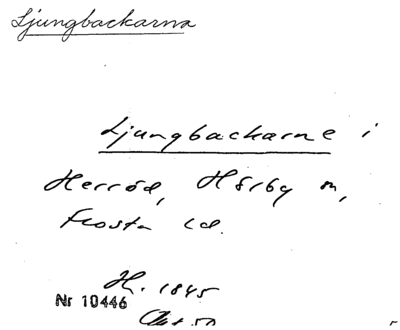 Ljungbackarna
Ljungbackarne i
Herröd, Hörby m,
Frosta
H. 1845
Nr 10446